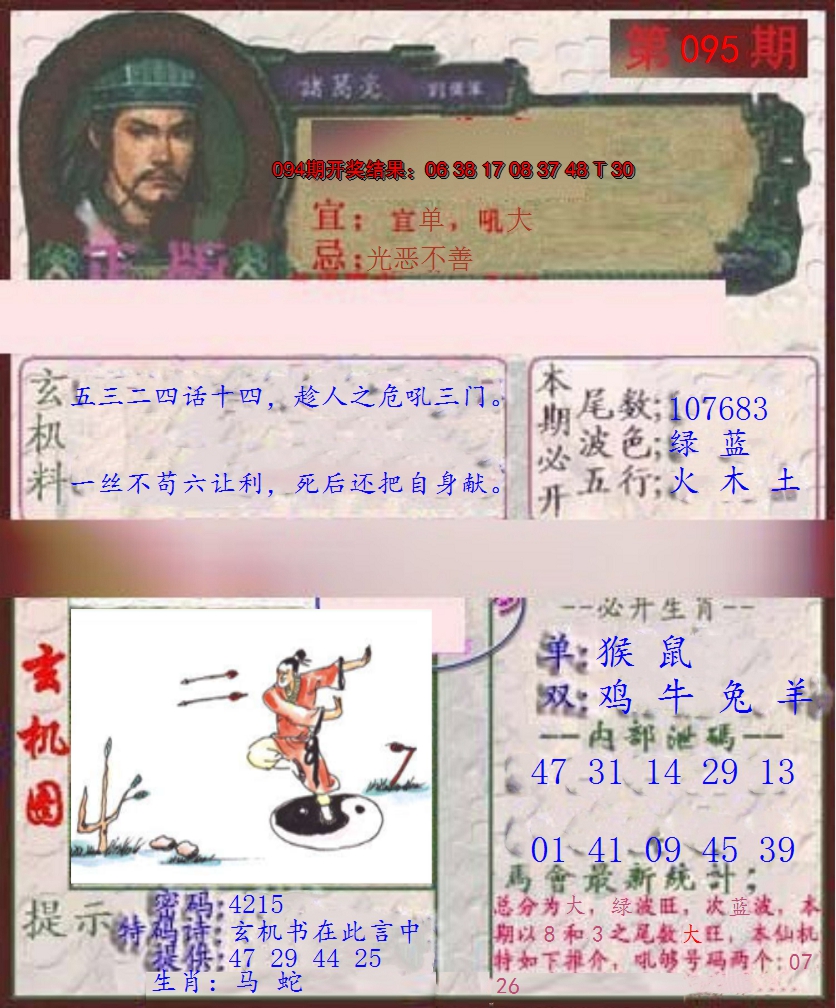 第 095 期
諸葛亮
094期开奖结果：06 38 17 08 37 48 T 30
宜：宜单，吼大
忌；光恶不善
正版
玄机料
五三二四话十四，趁人之危吼三门。
一丝不苟六让利，死后还把自身献。
本期必开
尾数;107683
波色;绿 蓝
五行;火 木 土
玄机图
--必开生肖--
单:猴 鼠
双:鸡 牛 兔 羊
—内部泄碼—
47 31 14 29 13
01 41 09 45 39
馬會最新统計；
总分为大，绿波旺，次蓝波，本
期以8和3之尾数大旺，本仙机
特如下推介，吼够号码两个:07
26
提示
密码:4215
特码诗:玄机书在此言中
提供:47 29 44 25
生肖：马 蛇